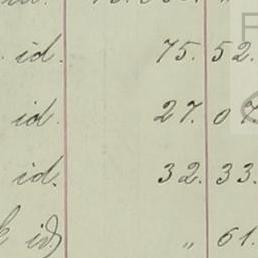 id. 75. 52.
id. 27. 07.
id. 32. 33.
id. „ 61.